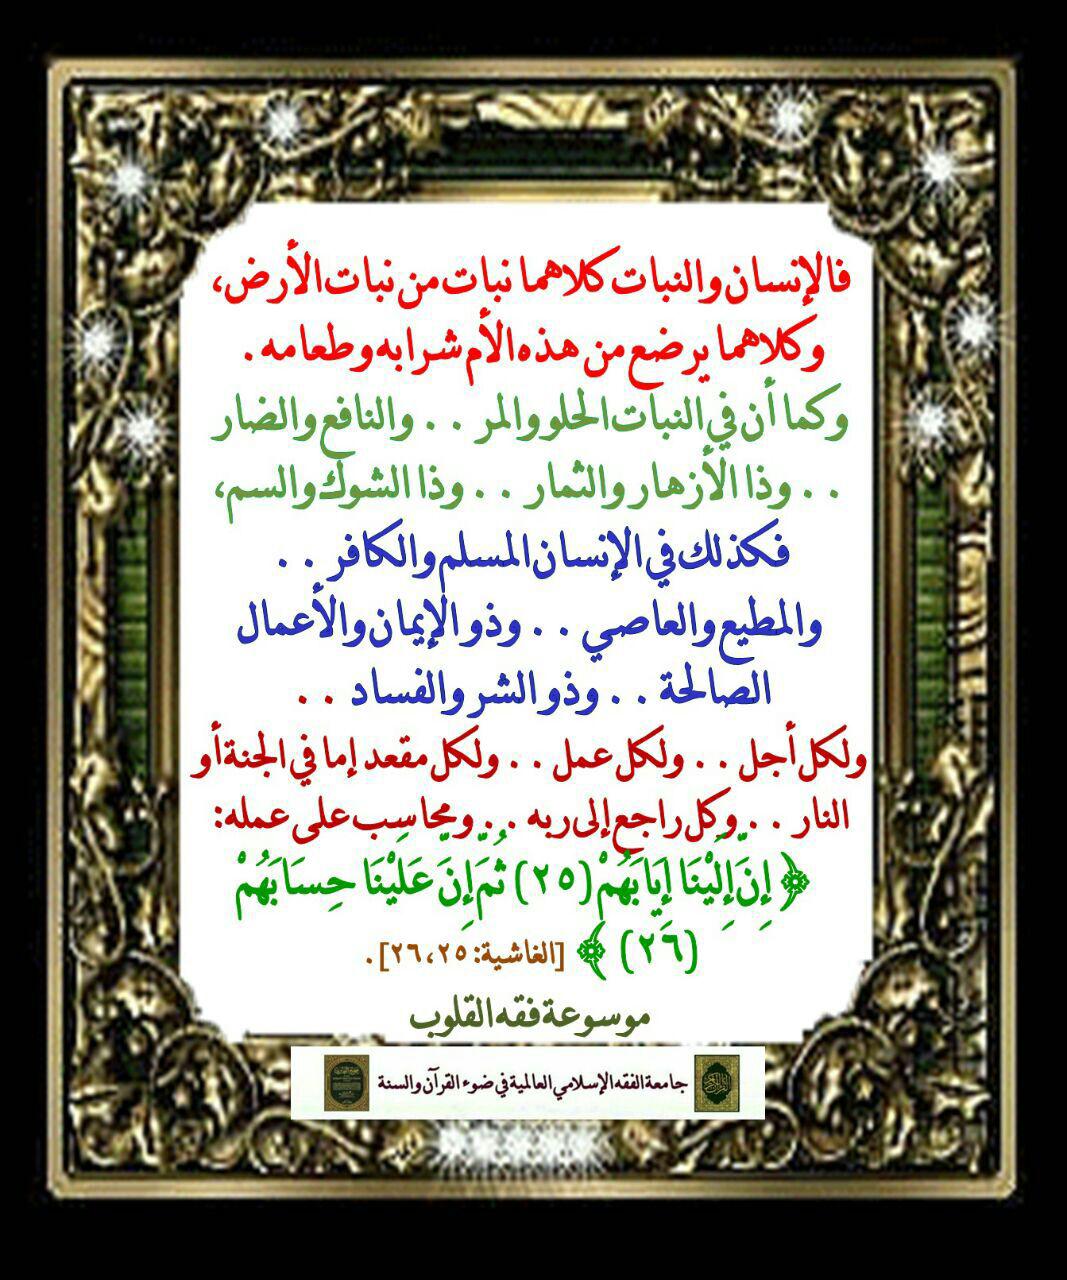 فالإنسان والنبات كلاهما نبات من نبات الأرض،
وكلاهما يرضع من هذه الأم شرابه وطعامه .
وكما أن في النبات الحلو والمر . . والنافع والضار
. . وذا الأزهار والثمار . . وذا الشوك والسم،
فكذلك في الإنسان المسلم والكافر . .
والمطيع والعاصي . . وذو الإيمان والأعمال
الصالحة . . وذو الشر والفساد . .
ولكل أجل . . ولكل عمل . . ولكل مقعد إما في الجنة أو
النار . . وكل راجع إلى ربه . . ومحاسب على عمله:
﴿ إِنَّ إِلَيْنَا إِيَابَهُمْ (٢٥) ثُمَّ إِنَّ عَلَيْنَا حِسَابَهُمْ
(٢٦) ﴾ [الغاشية: ٢٥، ٢٦] .
موسوعة فقه القلوب
جامعة الفقه الإسلامي العالمية في ضوء القرآن والسنة